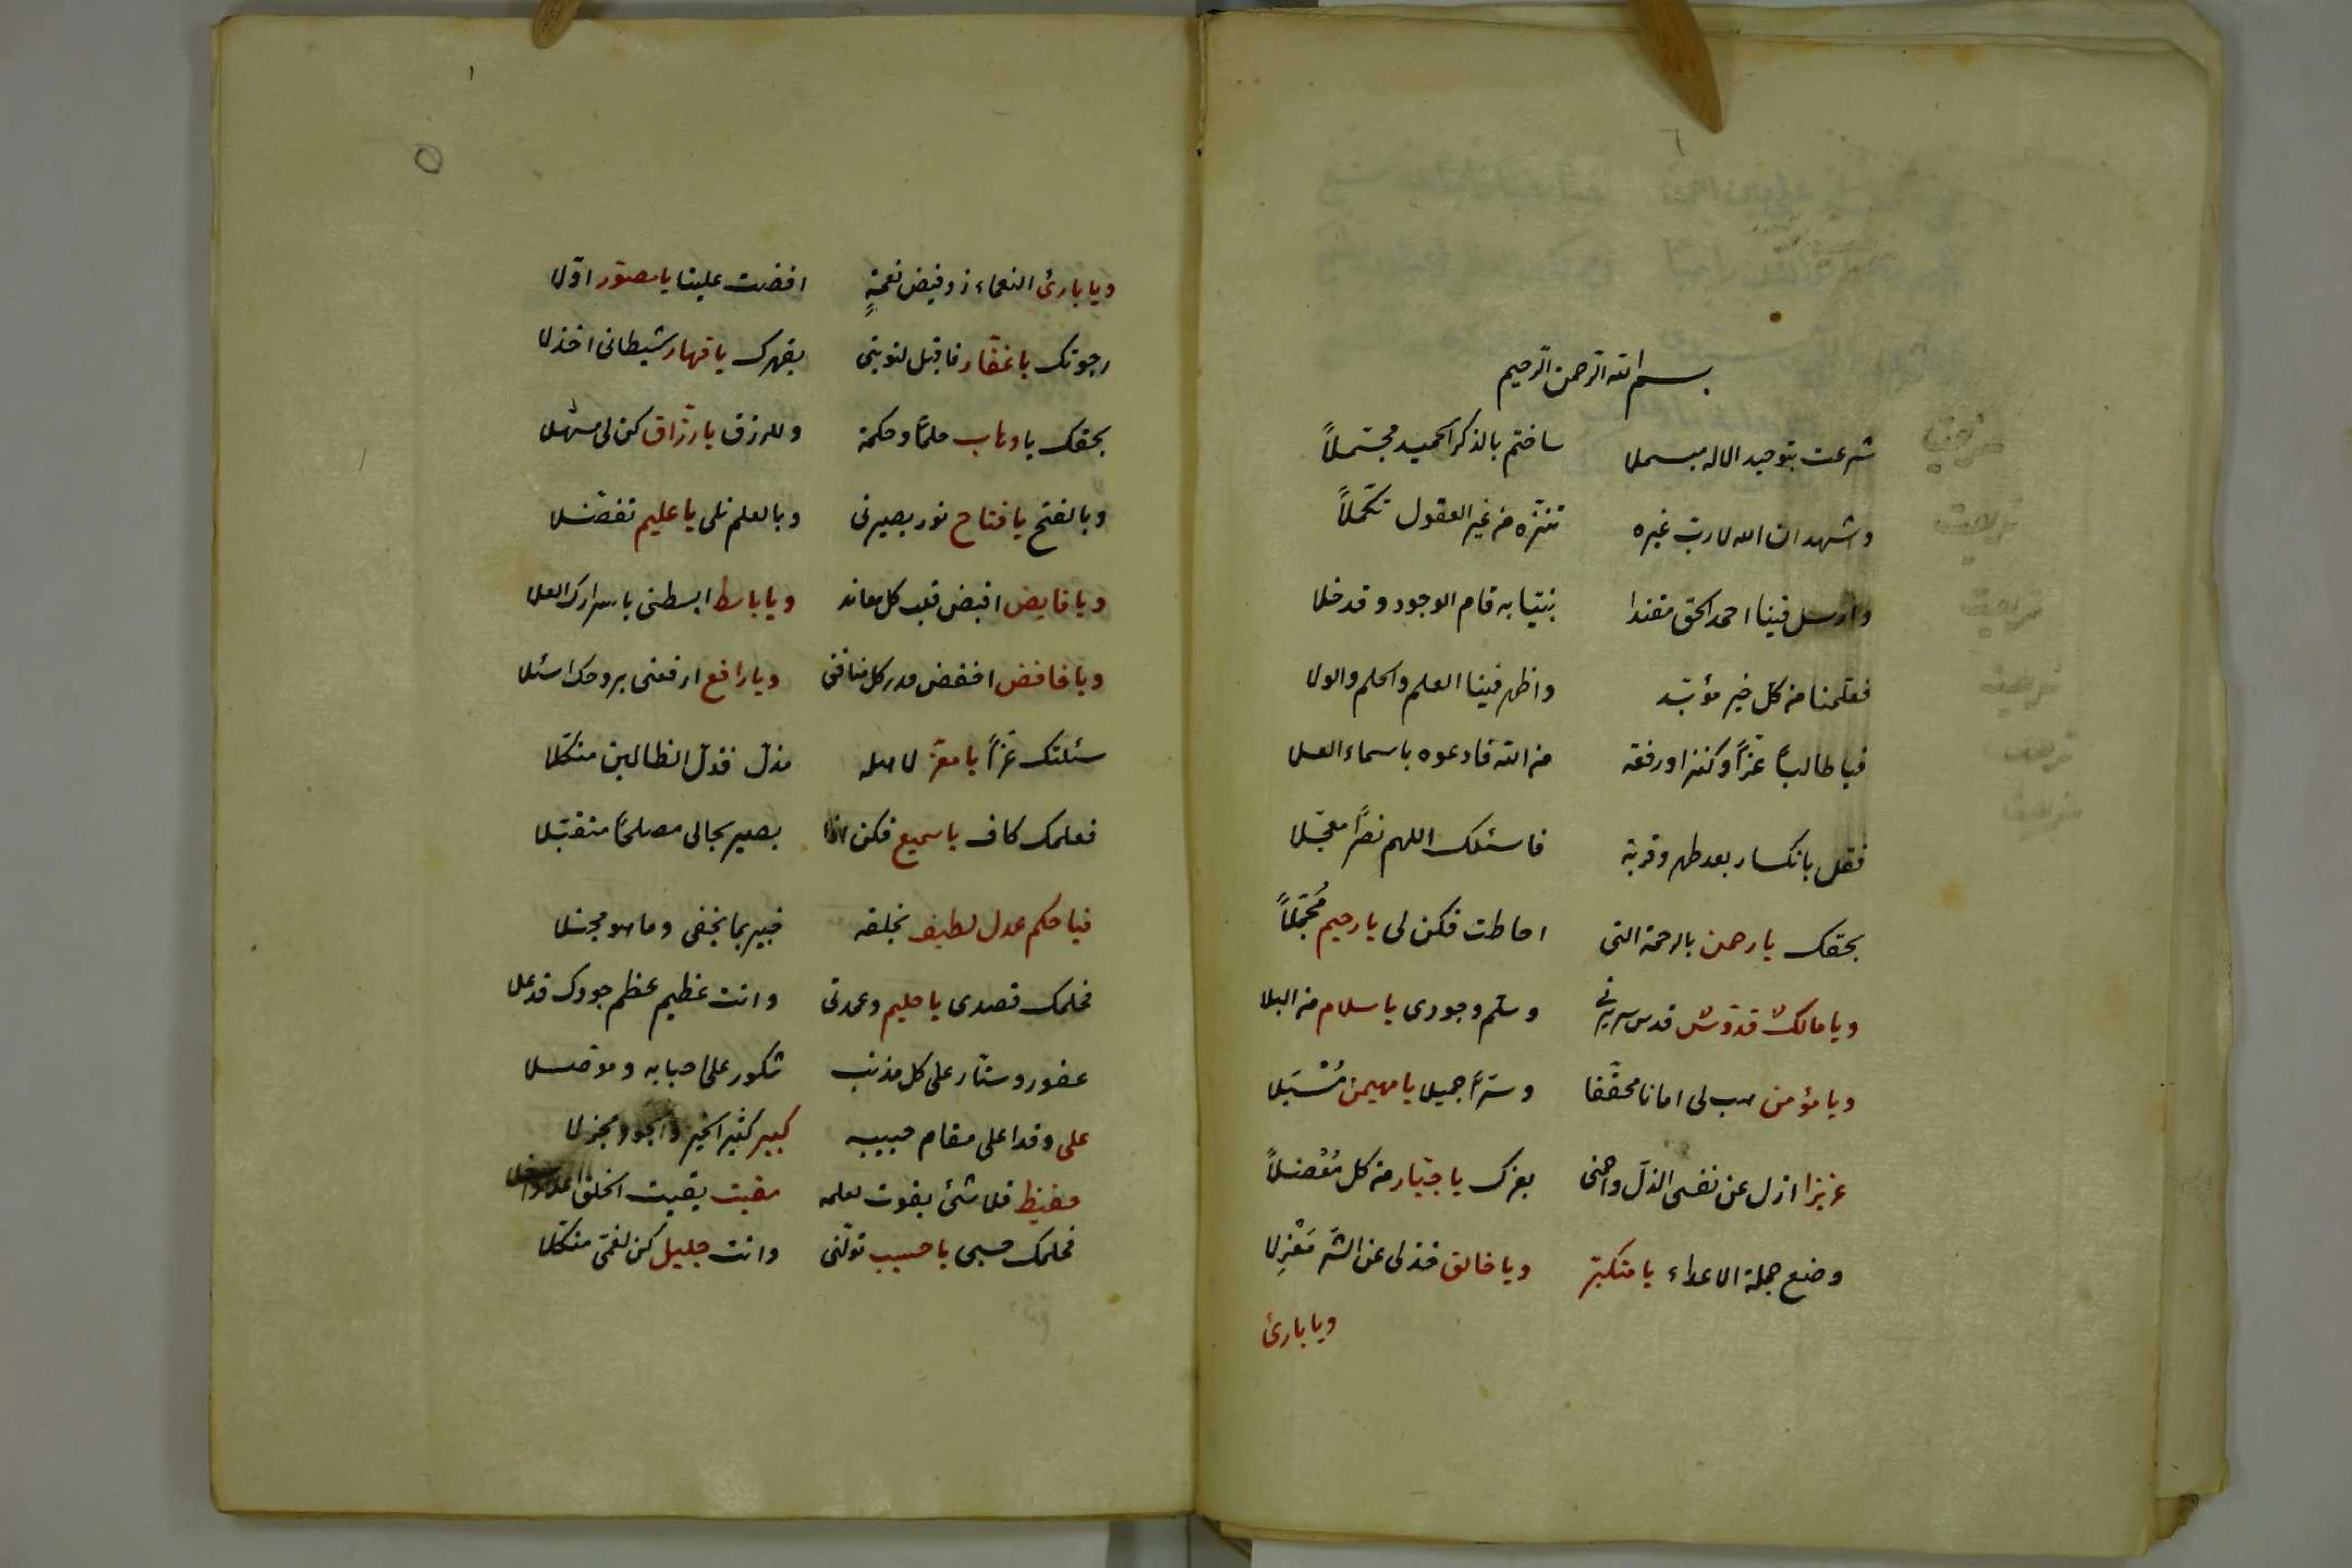 بسم الله الرحمن الرحيم
شرعت بتوحيد الاله مبسملا ساختم بالذكر الحميد مجتملاً
واشهد ان الله لا ربّ غيره تنزّه عن غير العقول تكمّلاً
وارسل فينا احمد الحق مقتدا نبيّا به قام الوجود وقد خلا
فعلّمنا من كلّ خير مؤبّد واظهر فينا العلم والحلم والولا
فيا طالباً عزّاً وكنزا ورفعة من الله فادعوه باسماء العلا
فقل بانكسار بعد طهر وقربة فاسئلك اللهم نصرًا معجّلا
بحقك يا رحمن بالرحمة التى احاطت فكن لى يا رحيم مُجمّلاً
ويا مالكٌ قدّوسٌ قدس سريرتى وسلّم وجودى يا سلام من البلا
ويا مؤمن هب لى امانا محقّقا وسترًا جميلا يا مهيمن مُسْبَلا
عزيزا ازل عن نفسى الذلّ واحمنى بعزك يا جبّار من كل مُعْضلاً
وضع جملة الاعداء يا متكبّر ويا خالق خذ لى عن الشّر مَعْزِلا
ويا بارئ
ويا بارئ النعماء زد فيض نعمةٍ افضت علينا يا مصوّر اوّلا
رجوتك يا غفّار فاقبل لتوبتى بقهرك يا قهار شيطانى اخذلا
بحقك يا وهاب علمًا وحكمة وللرزق يا رزّاق كن لى مسهّلا
وبالفتح يا فتاح نور بصيرتى وبالعلم نلى يا عليم تفضّلا
ويا قابض اقبض قلب كل معاند ويا باسط ابسطنى باسرارك العلا
ويا خافض اخفض قدر كل منافق ويا رافع ارفعنى بروحك اسئلا
سئلتك عزّاً يا معزّ لاهله مذلّ فذلّ الظالمين منكّلا
فعلمك كاف يا سميع فكن اذا بصير بحالى مصلحًا متقبّلا
فيا حكم عدل لطيف بخلقه خبير بما يخفى وما هو مجتلا
فحلمك قصدى يا حليم وعمدتى وانت عظيم عظم جودك قد علا
غفور وستّار على كل مذنب شكور على احبابه وموصلا
على وقد اعلى مقام حبيبه كبير كثير الخير والجود مجزلا
حفيظ فلا شئ يفوت لعلمه مقيت يقيت الخلق
فحلمك حسبى يا حسيب تولّنى وانت جليل كن لغمّى منكّلا